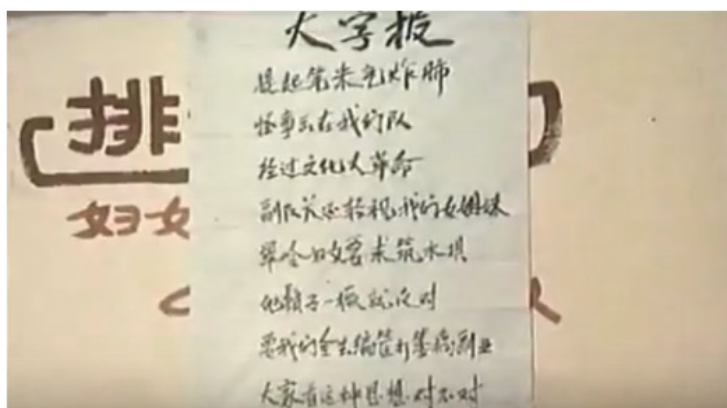 大字报
提起笔来气炸肺
怪事出在我们队
经过文化大革命
副队长还轻视我们女姐妹
翠岭妇女要求筑水坝
他鞋子一撅就反对
要我们全去编筐打篓搞副业
大家看这种思想对不对
排
妇女